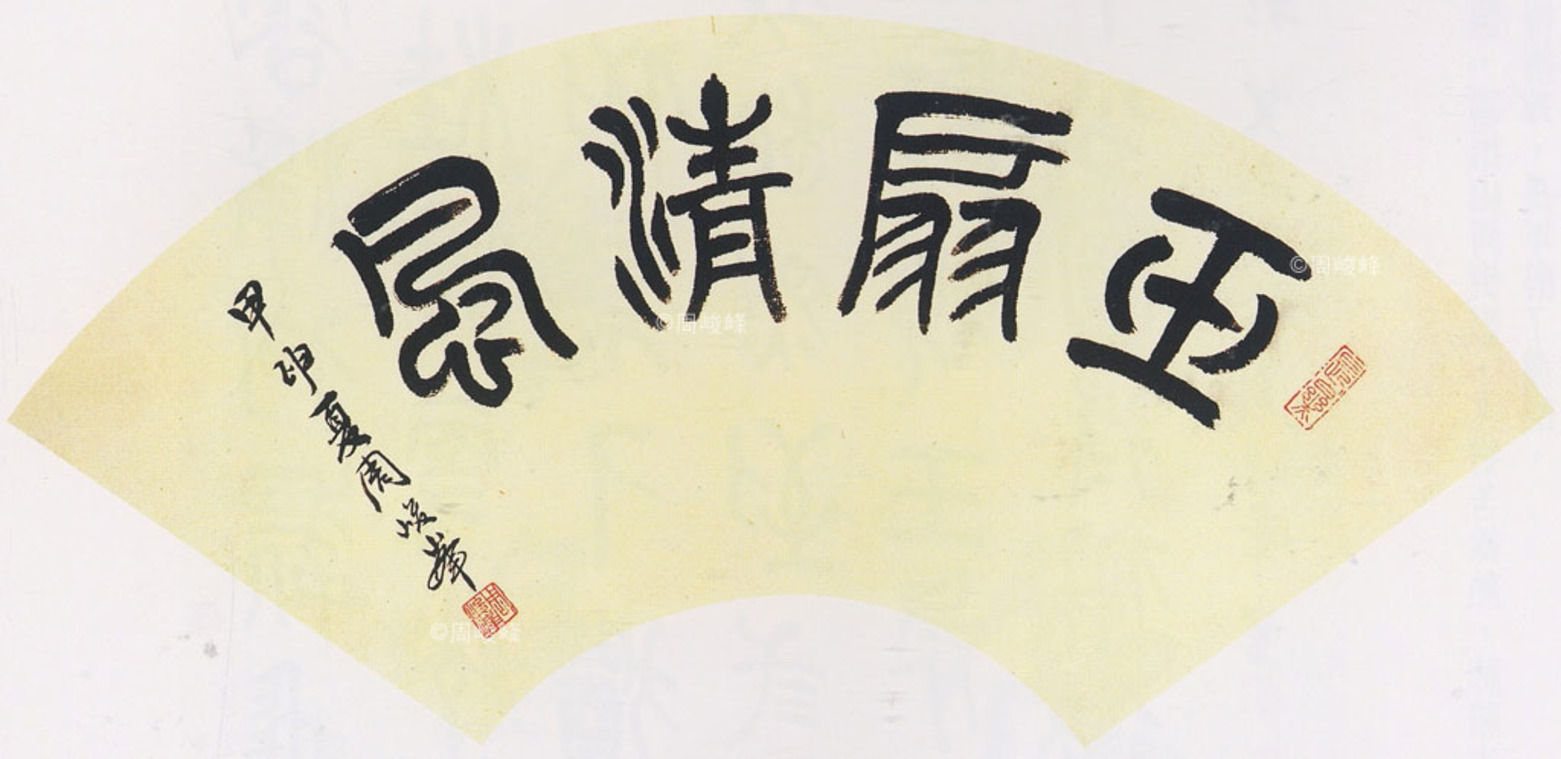 玉扇清風
甲申夏周峻峰
©周峻峰
©周峻峰
©周峻峰